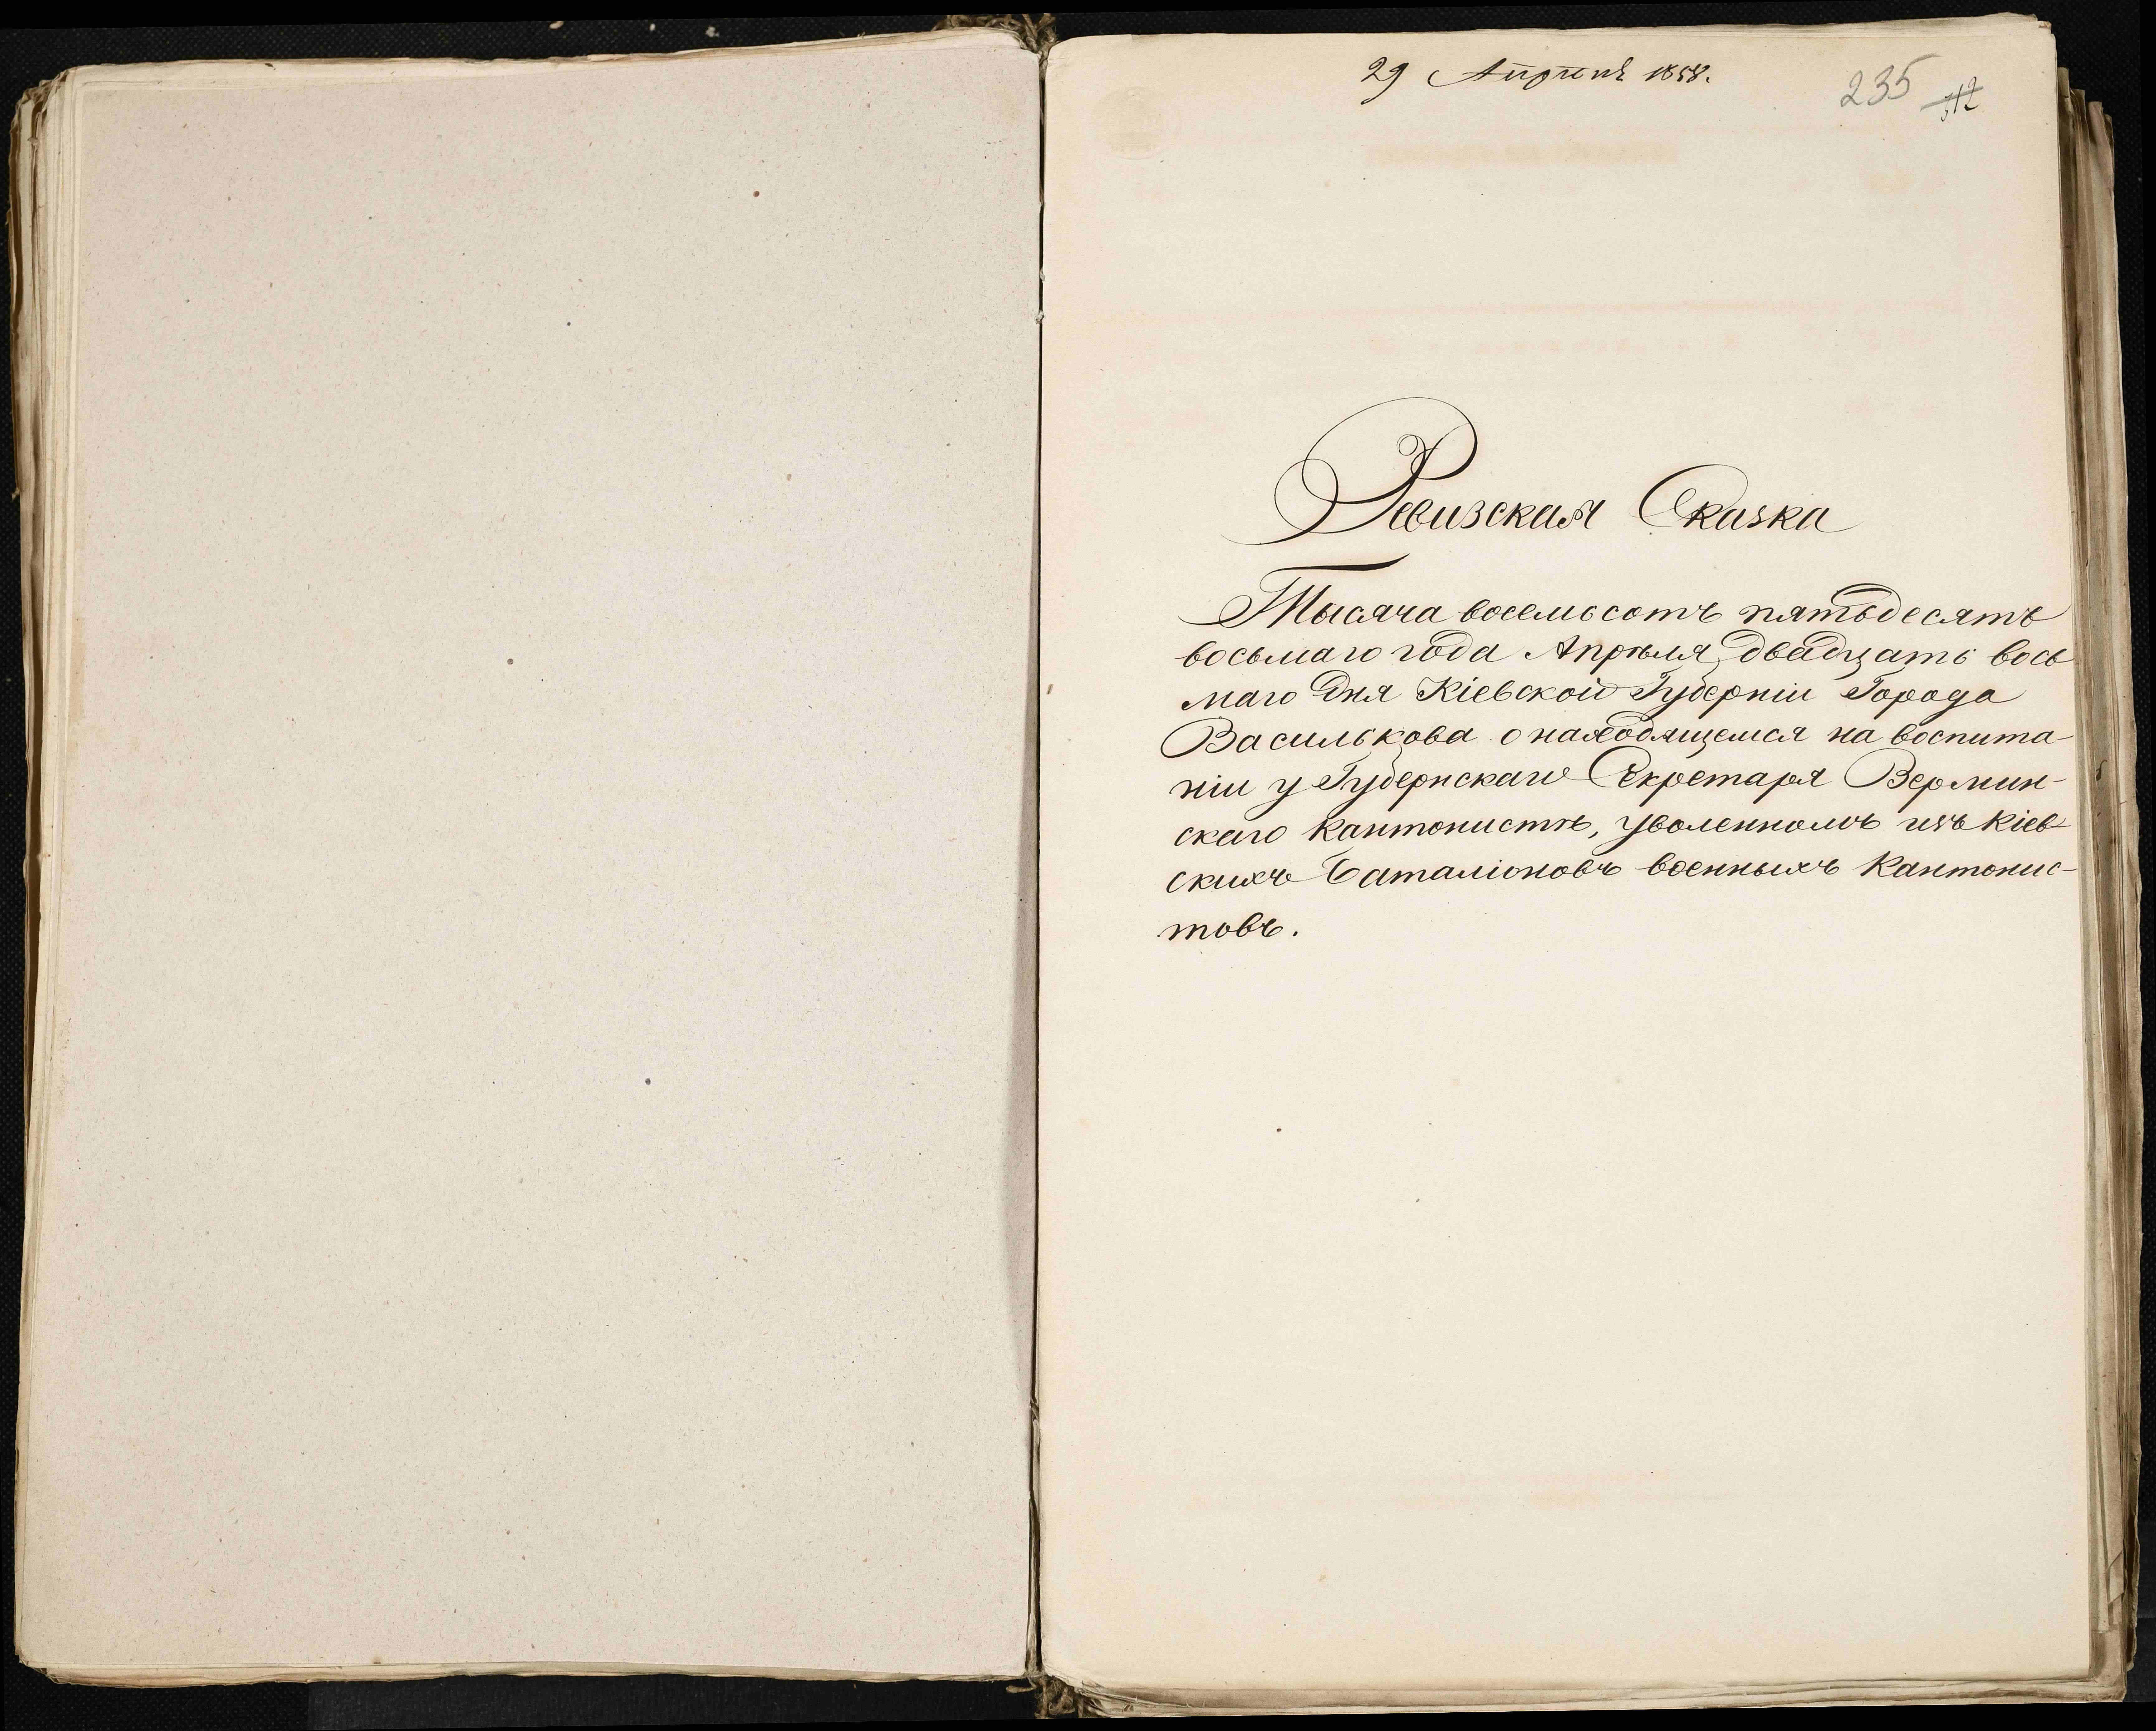 29 Апрѣля 1858.
235 312
Ревизская Сказка
Тысяча восемьсотъ пятьдесятъ
восьмаго года Апрѣля двадцать вось
маго дня Кіевской Губерніи Города
Василькова о находящемся на воспита-
ніи у Губернскаго Секретаря Вермин-
скаго Кантонистѣ, уволенномъ изъ Кіев-
скихъ Баталіоновъ военныхъ Кантонис-
товъ.